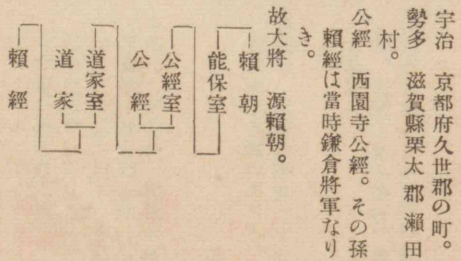 宇治　京都府久世郡の町。
勢多　滋賀縣栗太郡瀨田
村。
公經　西園寺公經。その孫
賴經は當時鎌倉將軍なり
き。
故大將　源賴朝。
賴朝
能保室
公經室
公經
道家室
道家
賴經